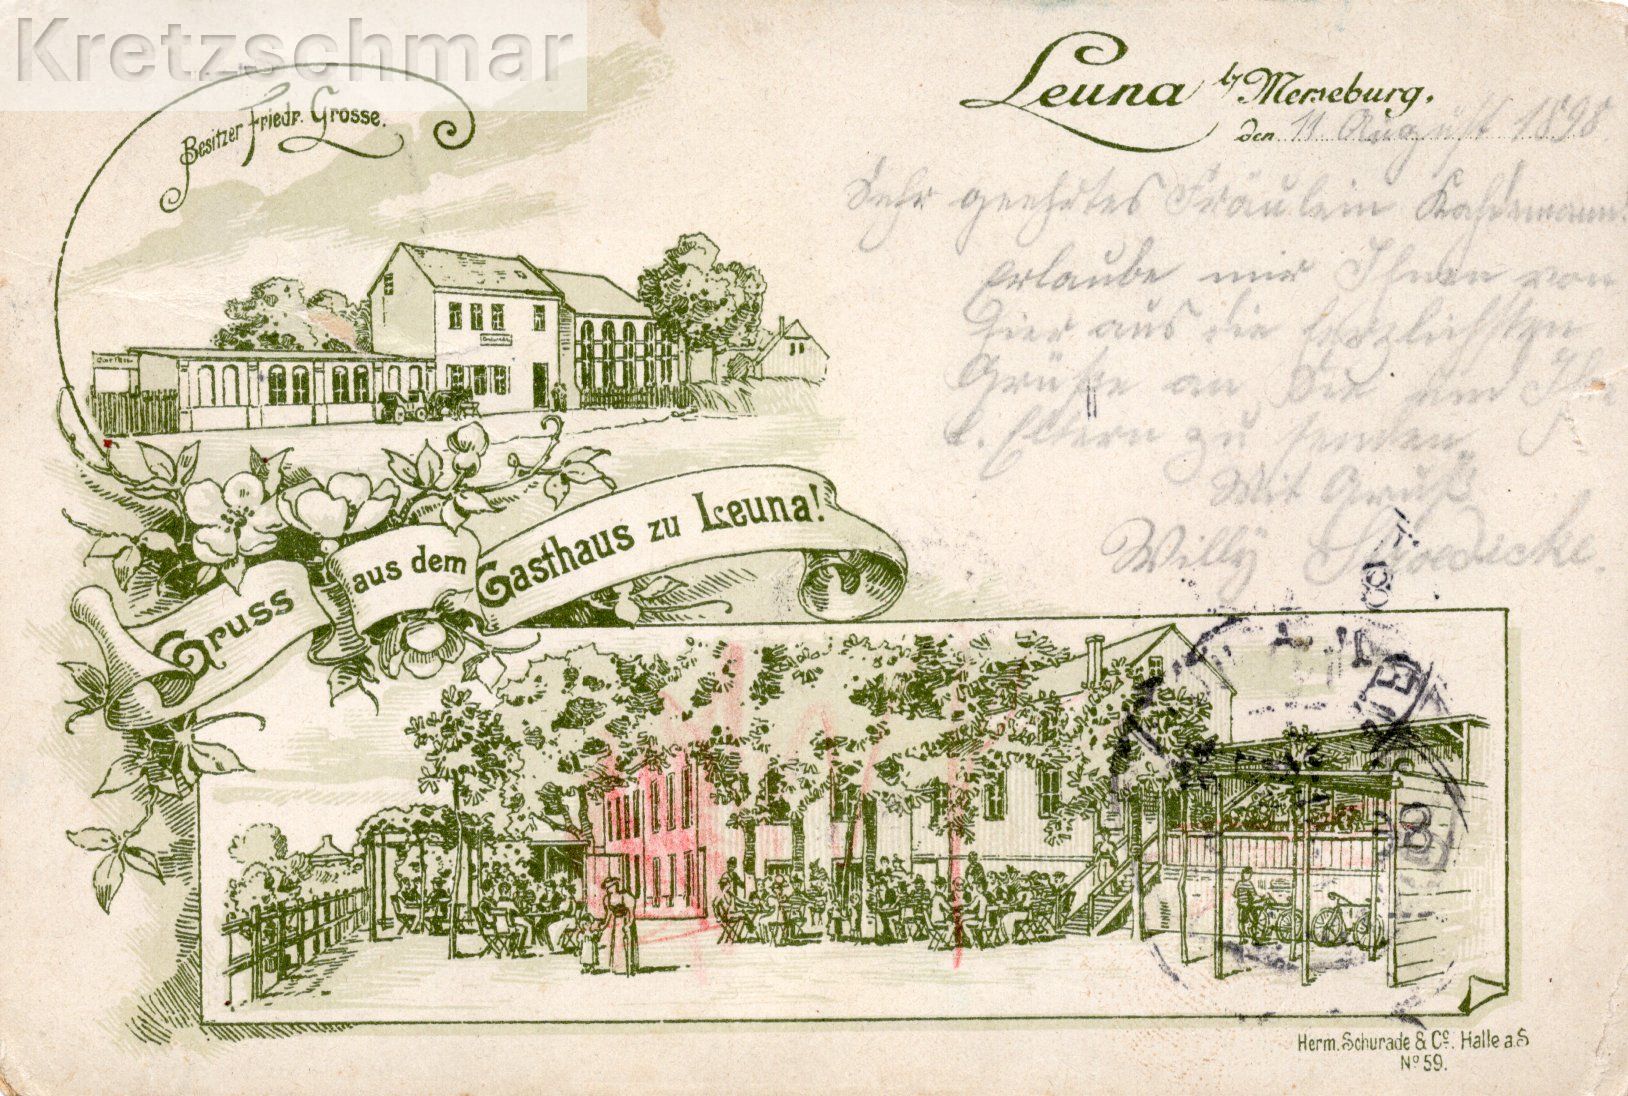 Kretzschmar
Besitzer Friedr. Grosse.
Leuna b/ Merseburg,
den 11 August 1898
Sehr geehrtes Fräulein
Erlaube mir Ihnen von
hier aus die herzlichsten
Grüße an Sie und Ihr
l. Eltern zu senden
Mit Gruß
Willy
Gruss aus dem Gasthaus zu Leuna!
Herm. Schurade & Co. Halle a.S
No 59.